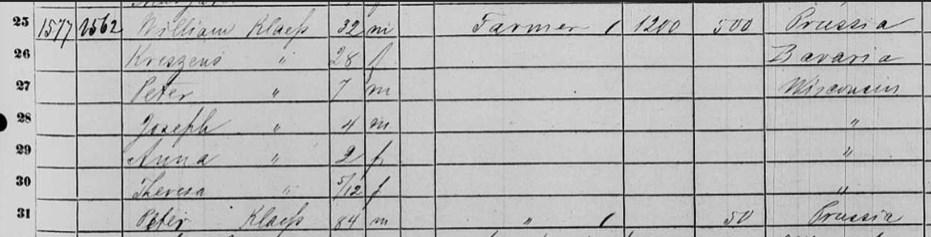 25 1577 1562 William Klaess 32 m Farmer 1 1200 500 Prussia
26 Kreszens " 28 f Bavaria
27 Peter " 7 m Wisconsin
28 Joseph " 4 m "
29 Anna " 2 f "
30 Theresa " 5/12 f "
31 Peter Klaess 84 m " 1 50 Prussia